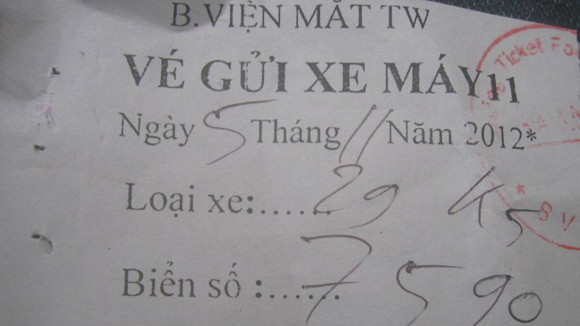 B.VIỆN MẮT TW
VÉ GỬI XE MÁY11
Ngày 5 Tháng 11 Năm 2012*
Loại xe:...... 29 K5
Biển số :...... 7590
Ticket Fo
* B V